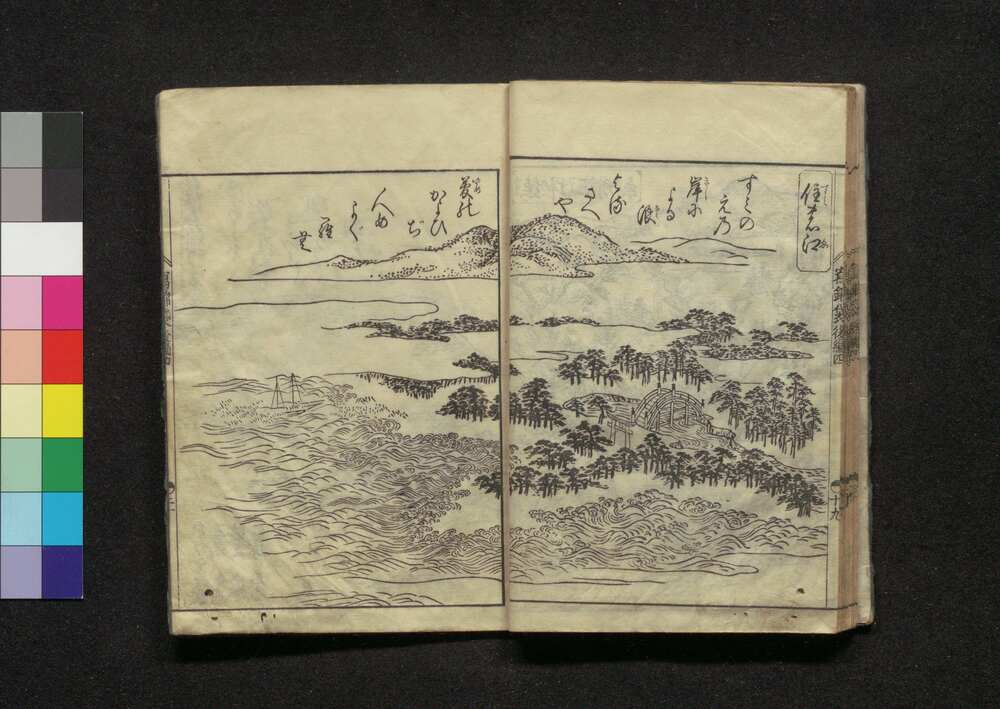 住吉江
すみの
え乃
岸に
よる
浪
よる
さへ
や
夢の
かよひ
ぢ
人め
よく
羅
無
十九